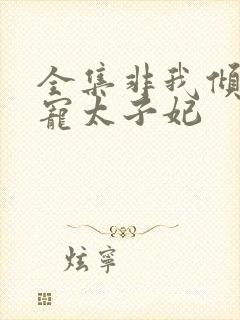 全集非我傾
寵太子妃
炫寧